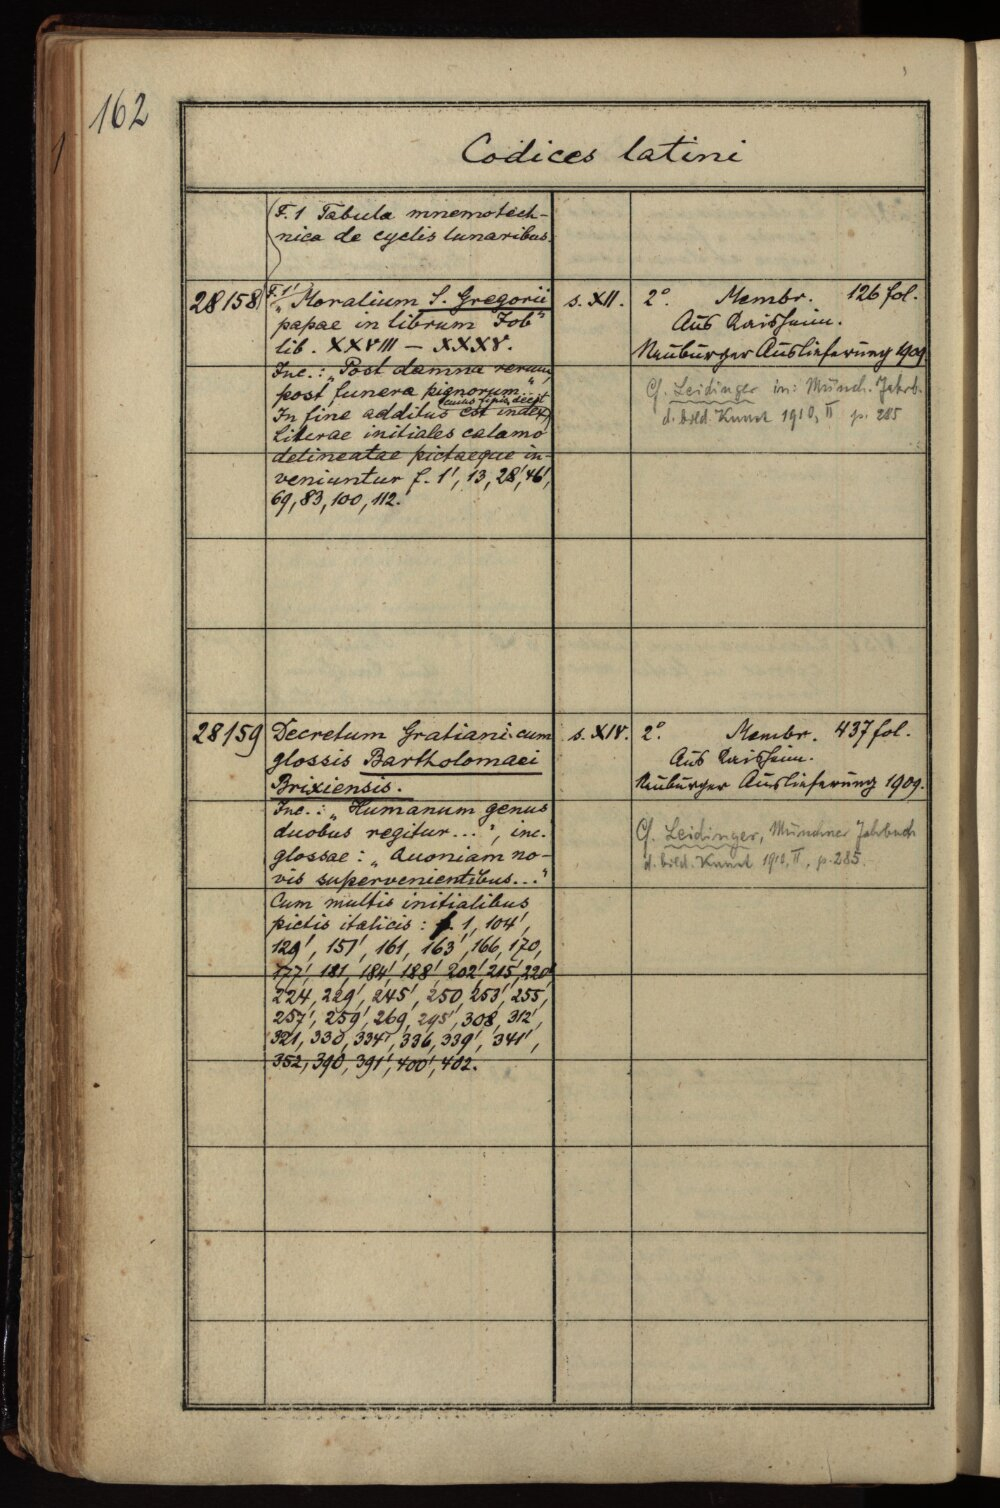 162
Codices latini
(F. 1 Tabula mnemotech-
nica de cyclis lunaribus.
28158) F. 1' „Moralium S. Gregorii s. XII. 2°. Membr. 126 fol.
papae in librum Job“ Aus Kaisheim.
lib. XXVIII – XXXV. Neuburger Auslieferung 1909.
Inc.: „Post damna rerum, Cf. Leidinger in: Münch. Jahrb.
post funera pignorum...“ d. bild. Kunst 1910, II p. 285
cuius finis deest
In fine additus est index)
Literae initiales calamo
delineatae pictaeque in-
veniuntur f. 1', 13, 28', 46',
69, 83, 100, 112.
28159 Decretum Gratiani cum s. XIV. 2°. Membr. 437 fol.
glossis Bartholomaei Aus Kaisheim.
Brixiensis. Neuburger Auslieferung 1909.
Inc.: „Humanum genus Cf. Leidinger, Münchner Jahrbuch
duobus regitur...“, inc. d. bild. Kunst 1910, II, p. 285.
glossae: „Quoniam no-
vis supervenientibus...“
Cum multis initialibus
pictis italicis: f. 1, 104',
129', 151', 161, 163', 166, 170,
177', 181, 184', 188', 202', 215', 220'
224, 229', 245', 250, 253', 255,
257', 259', 269, 295', 308, 312',
321, 330, 334', 336, 339', 341',
352, 390, 391', 400', 402.